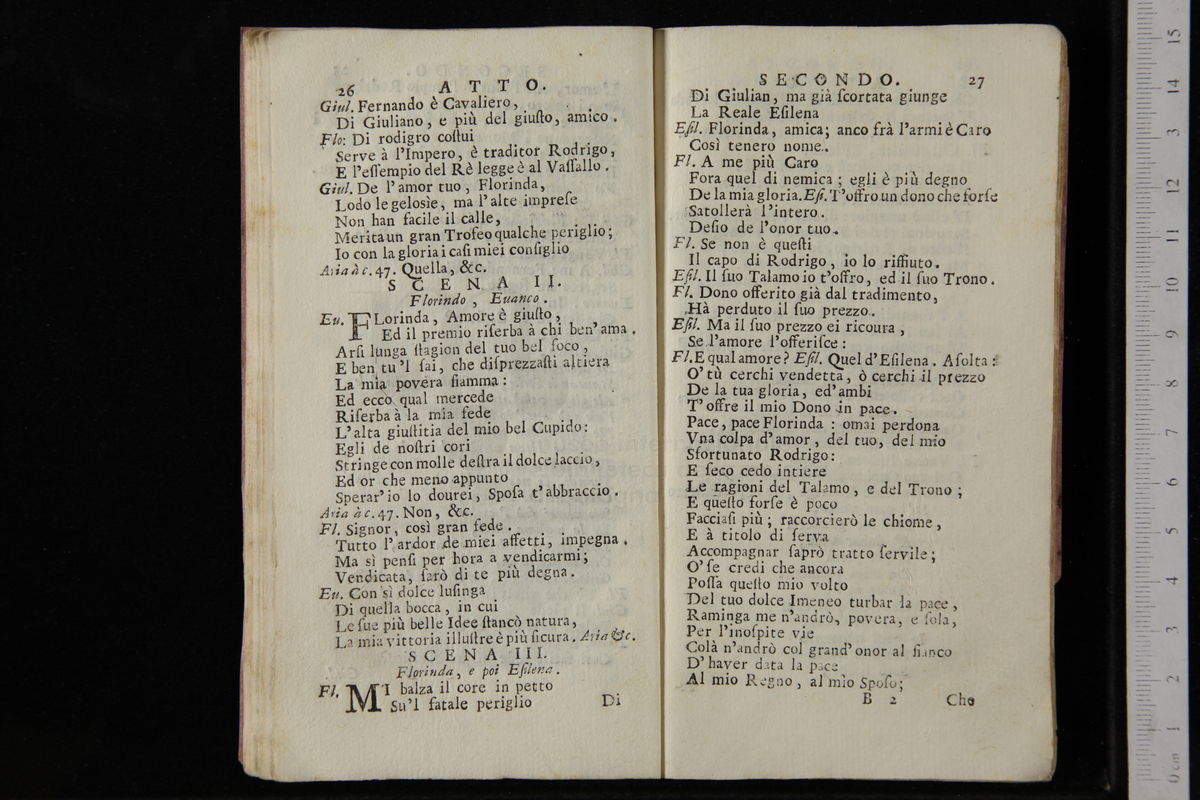 26 A T T O.
Giul. Fernando è Cavaliero,
Di Giuliano, e più del giuſto, amico.
Flo: Di rodigro coſtui
Serve à l'Impero, è traditor Rodrigo,
E l'eſſempio del Rè legge è al Vaſſallo.
Giul. De l'amor tuo, Florinda,
Lodo le geloſìe, ma l'alte impreſe
Non han facile il calle,
Merita un gran Trofeo qualche periglio;
Io con la gloria i caſi miei conſiglio
Aria à c. 47. Quella, &c.
S C E N A II.
Florindo, Euanco.
Eu. FLorinda, Amore è giuſto,
Ed il premio riſerba à chi ben'ama.
Arſi lunga ſtagion del tuo bel foco,
E ben tu'l ſai, che diſprezzaſti altiera
La mia povera fiamma:
Ed ecco qual mercede
Riſerba à la mia fede
L'alta giuſtitia del mio bel Cupido:
Egli de noſtri cori
Stringe con molle deſtra il dolce laccio,
Ed or che meno appunto
Sperar'io lo dourei, Spoſa t'abbraccio.
Aria à c. 47. Non, &c.
Fl. Signor, così gran fede.
Tutto l'ardor de miei affetti, impegna.
Ma sì penſi per hora a vendicarmi;
Vendicata, ſarò di te più degna.
Eu. Con sì dolce luſinga
Di quella bocca, in cui
Le ſue più belle Idee ſtancò natura,
La mia vittoria illuſtre è più ſicura. Aria &c.
S C E N A III.
Florinda, e poi Eſilena.
Fl. M'I balza il core in petto
Su'l fatale periglio
Di
S E C O N D O. 27
Di Giulian, ma già ſcortata giunge
La Reale Eſilena
Eſil. Florinda, amica; anco frà l'armi è Caro
Così tenero nome.
Fl. A me più Caro
Fora quel di nemica; egli è più degno
De la mia gloria. Eſi. T'offro un dono che forſe
Satollerà l'intero.
Deſio de l'onor tuo.
Fl. Se non è queſti
Il capo di Rodrigo, io lo riffiuto.
Eſil. Il ſuo Talamo io t'offro, ed il ſuo Trono.
Fl. Dono offerito già dal tradimento,
Hà perduto il ſuo prezzo.
Eſil. Ma il ſuo prezzo ei ricoura,
Se l'amore l'offeriſce:
Fl. E qual amore? Eſil. Quel d'Eſilena. Aſolta:
O' tù cerchi vendetta, ò cerchi il prezzo
De la tua gloria, ed'ambi
T'offre il mio Dono in pace.
Pace, pace Florinda: omai perdona
Vna colpa d'amor, del tuo, del mio
Sfortunato Rodrigo:
E ſeco cedo intiere
Le ragioni del Talamo, e del Trono;
E queſto forſe è poco
Facciaſi più; raccorcierò le chiome,
E à titolo di ſerva
Accompagnar ſaprò tratto ſervile;
O' ſe credi che ancora
Poſſa queſto mio volto
Del tuo dolce Imeneo turbar la pace,
Raminga me n'andrò, povera, e ſola,
Per l'inoſpite vie
Colà n'andrò col grand'onor al fianco
D'haver data la pace
Al mio Regno, al mio Spoſo;
B 2 Che
0 cm 1 2 3 4 5 6 7 8 9 10 11 12 13 14 15